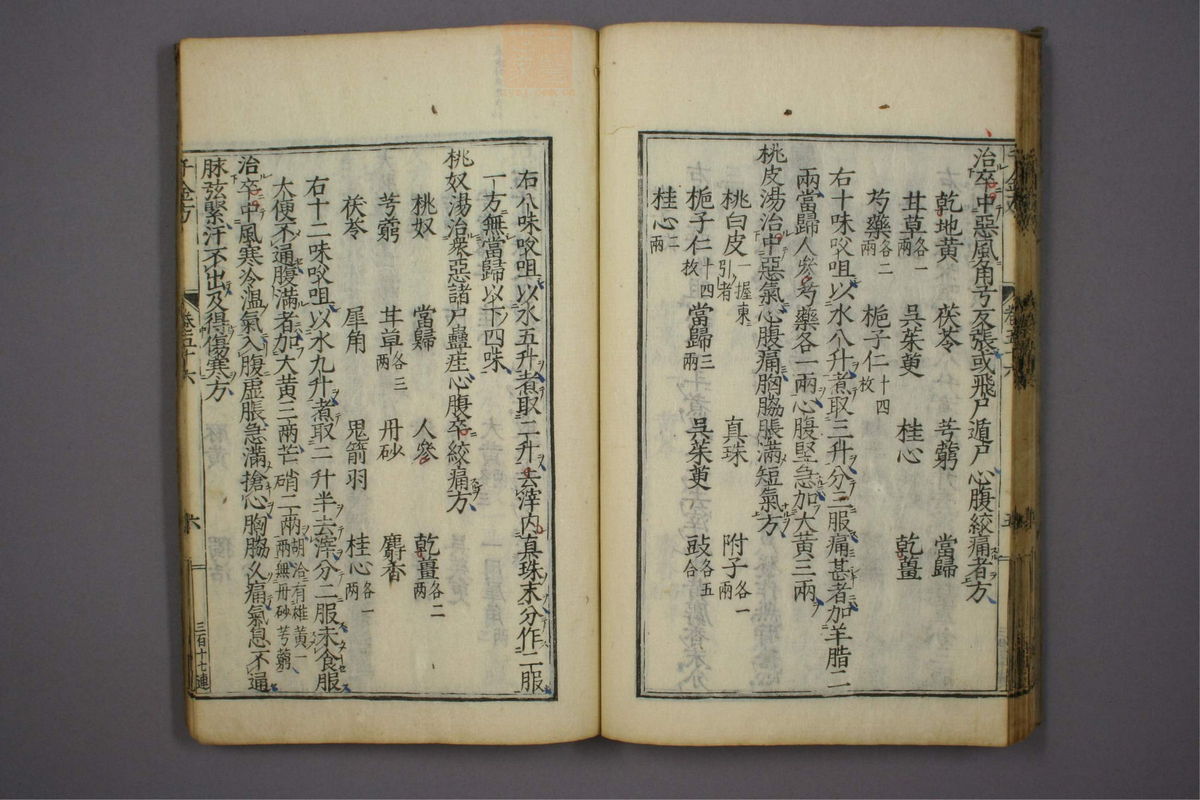 治卒中惡風角弓反張或飛尸遁尸心腹絞痛者方
乾地黄 茯苓 芎藭 當歸
甘草各一兩 吳茱萸 桂心 乾薑
芍藥各二兩 梔子仁十四枚
右十味㕮咀以水八升煮取三升分三服痛甚者加羊脂二
兩當歸人參芍藥各一兩心腹堅急加大黄三兩
桃皮湯治中惡氣心腹痛胸脇脹滿短氣方
桃白皮一握東引者 真珠 附子各一兩
梔子仁十四枚 當歸三兩 吳茱萸 豉各五合
桂心二兩
右八味㕮咀以水五升煮取二升去滓内真珠末分作二服
一方無當歸以下四味
桃奴湯治衆惡諸尸蠱疰心腹卒絞痛方
桃奴 當歸 人參 乾薑各二兩
芎藭 甘草各三兩 丹砂 麝香
茯苓 犀角 鬼箭羽 桂心各一兩
右十二味㕮咀以水九升煮取二升半去滓分二服未食服
大便不通腹滿者加大黄三兩芒硝二兩胡洽有雄黄一兩無丹砂芎藭
治卒中風寒冷温氣入腹虚脹急滿搶心胸脇叉痛氣息不通
脉弦緊汗不出及得傷寒方
千金方 卷五十六 六 三百十七連